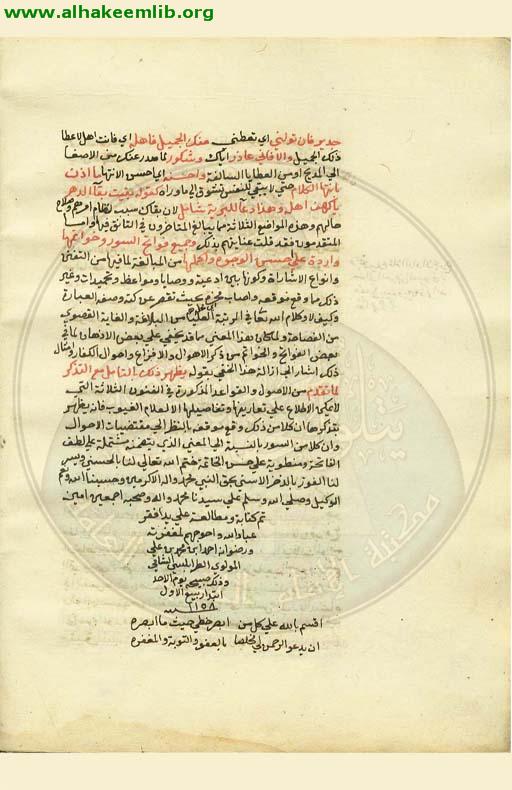 www.alhakeemlib.org
جدير فان تولني اي تعطني منك الجميل فاهل اي فانت اهل لاعطا
ذلك الجميل والا فاني عاذر اياك وشكور لما صدر عنك من الاصغا
الى المديح او من العطايا السالفة واحسنه اي احسن الانتها ما اذن
بانتها الكلام حتى لا يبقى للنفس تشوق الى ما وراه كقوله بقيت بقا الدهر
يا كهف اهله وهذا دعا للبرية شامل لان بقاك سبب لنظام امرهم وصلاح
حالهم وهذه المواضع الثلاثة مما يبالغ المتاخرون في التانق فيها واما
المتقدمون فقد قلت عنايتهم بذلك وجميع فواتح السور وخواتمها
واردة على احسن الوجوه واكملها من المبالغة لما فيها من التفنن
وانواع الاشارة وكونها بين ادعية ووصايا ومواعظ وتحميدات وغير
ذلك مما وقع موقعه واصاب محزه بحيث تقصر عن كنه وصفه العبارة
وكيف لا وكلام الله تعالى في الرتبة العليا من البلاغة والغاية القصوى
من الفصاحة ولما كان هذا المعنى مما قد يخفى على بعض الاذهان لما في
بعض الفواتح والخواتم من ذكر الاهوال والافزاع واحوال الكفار وامثال
ذلك اشار الى ازالة هذا الخفي بقوله يظهر ذلك بالتامل مع التذكر
لما تقدم من الاصول والقواعد المذكورة في الفنون الثلاثة التي
لا يمكن الاطلاع على تفاريعها وتفاصيلها الا لعلام الغيوب فانه يظهر
بتذكرها ان كلا من ذلك وقع موقعه بالنظر الى مقتضيات الاحوال
وان كلا من السور بالنسبة الى المعنى الذي يتضمنه مشتملة على لطف
الفاتحة ومنطوية على حسن الخاتمة ختم الله تعالى لنا بالحسنى ويسر
لنا الفوز بالذخر الاسنى بحق النبي محمد واله الاكرمين وحسبنا الله ونعم
الوكيل وصلى الله وسلم على سيدنا محمد واله وصحبه اجمعين امين
تم كتابة ومطالعة على يد افقر
عباد الله واحوجهم لمغفرته
ورضوانه احمد ابن محمد بن علي
المولوي الطرابلسي الشافي
وذلك صبيحة يوم الاحد
ابتدا ربيع الاول
سنة ١١٥٨
اقسم بالله على كل من ابصر خطي حيث ما ابصره
ان يدعو الرحمن لي مخلصا بالعفو والتوبة والمغفره